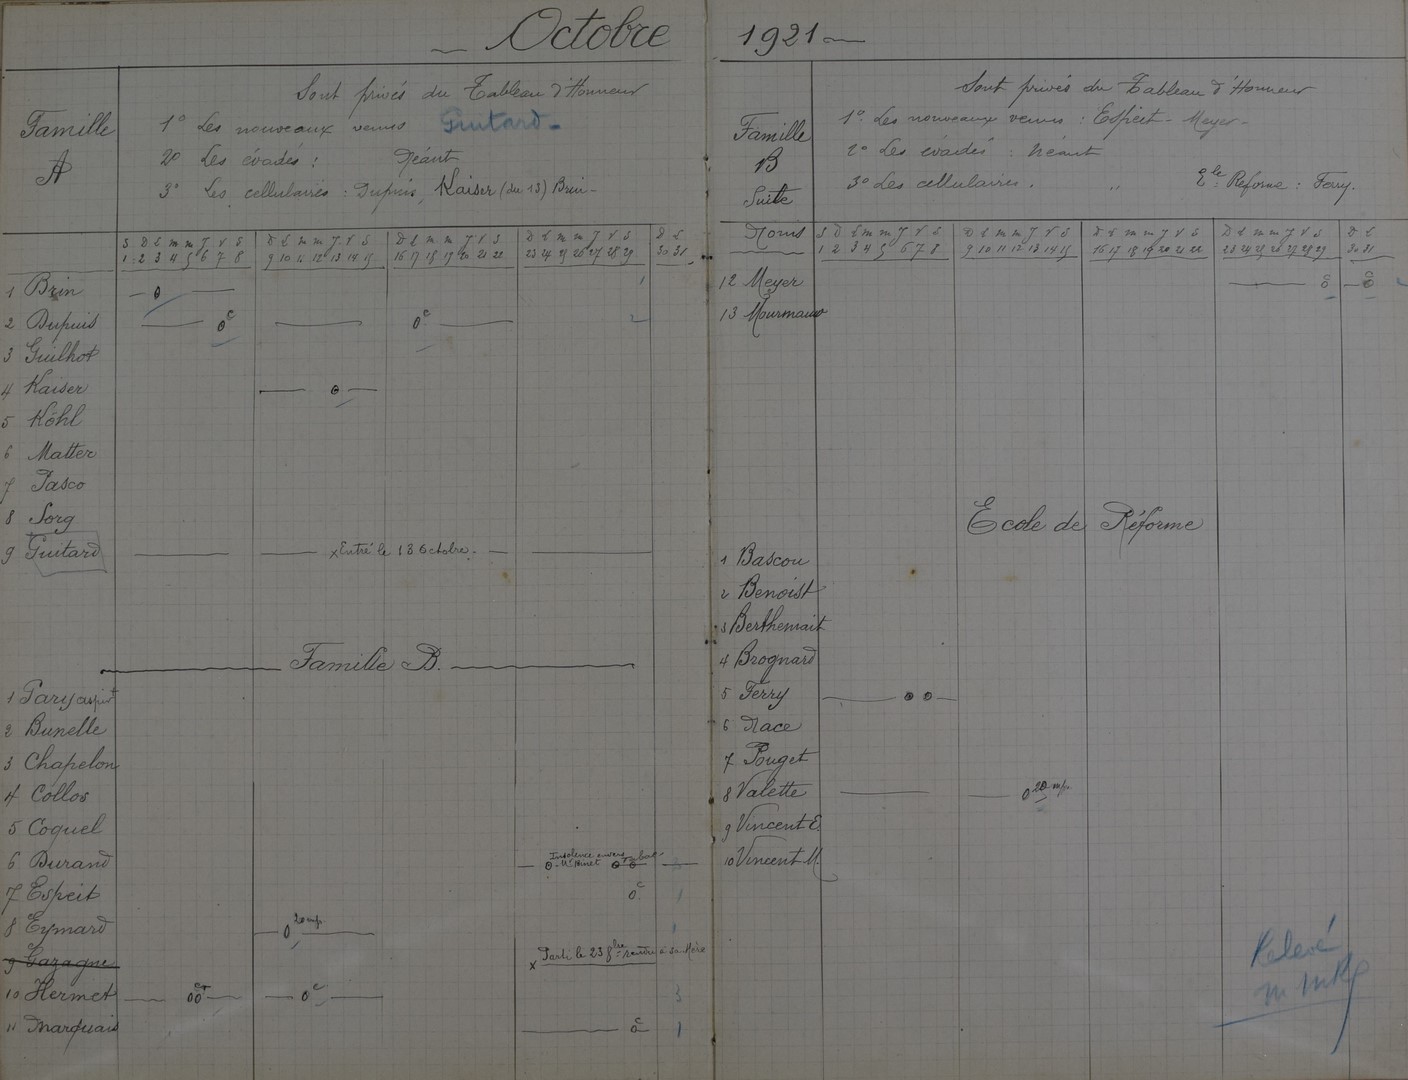 Octobre 1921
Famille A
Sont privés du Tableau d'Honneur
1º Les nouveaux venus Guitard
2º Les évadés : Néant
3º Les cellulaires : Dupuis, Kaiser (du 13) Brin
S D L m m J V S
1 2 3 4 5 6 7 8
D L m m J V S
9 10 11 12 13 14 15
D L m m J V S
16 17 18 19 20 21 22
D L m m J V S
23 24 25 26 27 28 29
D L
30 31
1 Brin 1
2 Dupuis 0c 0c 2
3 Guilhot
4 Kaiser
5 Köhl
6 Matter
7 Pasco
8 Sorg
9 Guitard x Entré le 13 Octobre
Famille B.
1 Gary
2 Bunelle
3 Chapelon
4 Collos
5 Coquel
6 Durand Insolence envers
7 Espeit 0c 1
8 Eymard 0 20 mp. 1
9 Gazagne x Parti le 23 8bre rentré à sa Mère
10 Hermet 00 0c 3
11 Marquais 0c 1
Famille B Suite
Sont privés du Tableau d'Honneur
1º Les nouveaux venus : Espeit - Meyer -
2º Les évadés : Néant
3º Les cellulaires : " Ele Réforme : Ferry.
Noms
S D L m m J V S
1 2 3 4 5 6 7 8
D L m m J V S
9 10 11 12 13 14 15
D L m m J V S
16 17 18 19 20 21 22
D L m m J V S
23 24 25 26 27 28 29
D L
30 31
12 Meyer 0c 0c
13 Mourmaux
Ecole de Réforme
1 Bascou
2 Benoist
3 Berthemait
4 Brognard
5 Ferry
6 Nace
7 Pouget
8 Valette 0 20 mp.
9 Vincent E.
10 Vincent M.
Relevé